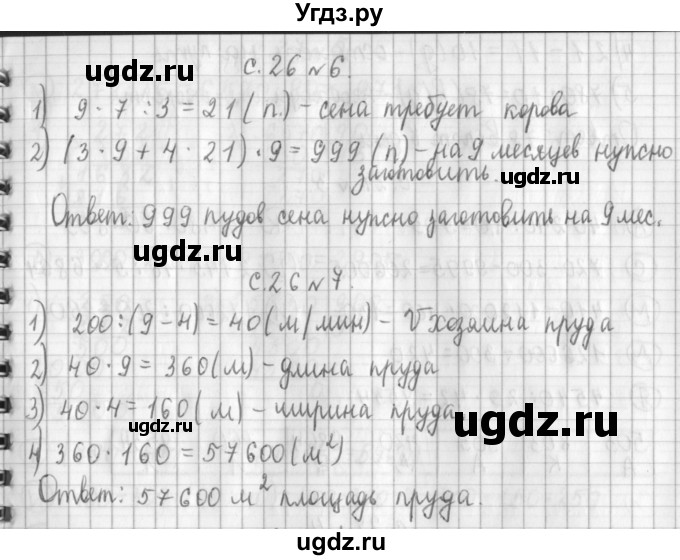 Угдз.ру
с. 26 №6.
1) 9·7:3=21(п.)-сена требует корова
2) (3·9+4·21)·9=999(п)-на 9 месяцев нужно
заготовить.
Ответ: 999 пудов сена нужно заготовить на 9 мес.
с.26 №7.
1) 200:(9-4)=40(м/мин)-V хозяина пруда
2) 40·9=360(м)-длина пруда
3) 40·4=160(м)-ширина пруда
4) 360·160=57600(м²)
Ответ: 57600 м² площадь пруда.
ugdz.ru
ugdz.ru
ugdz.ru
ugdz.ru
ugdz.ru
ugdz.ru
ugdz.ru